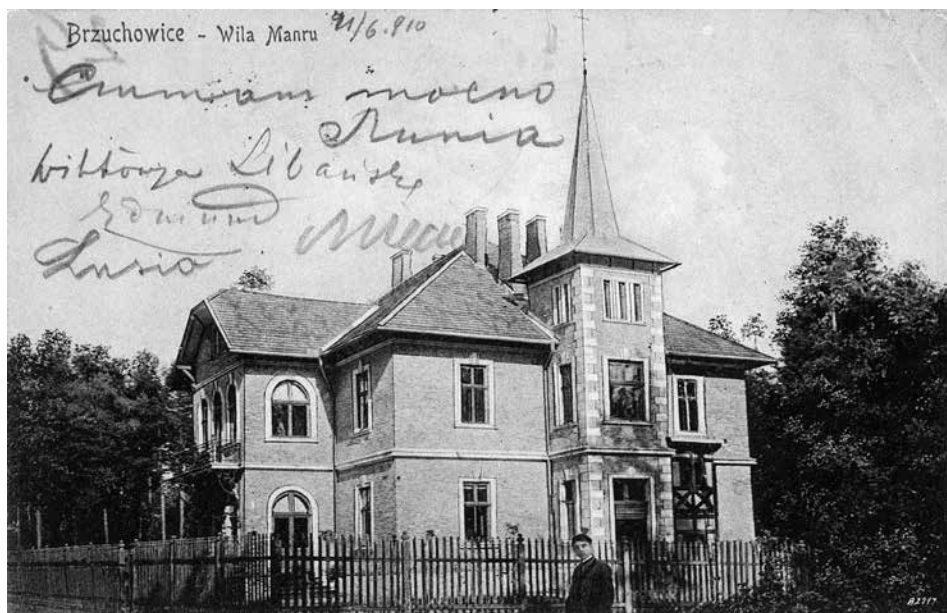 Brzuchowice - Wila Manru 21/6.910
mocno
Runia
Wiktorya Libańska
Edmund
Lusia
82717